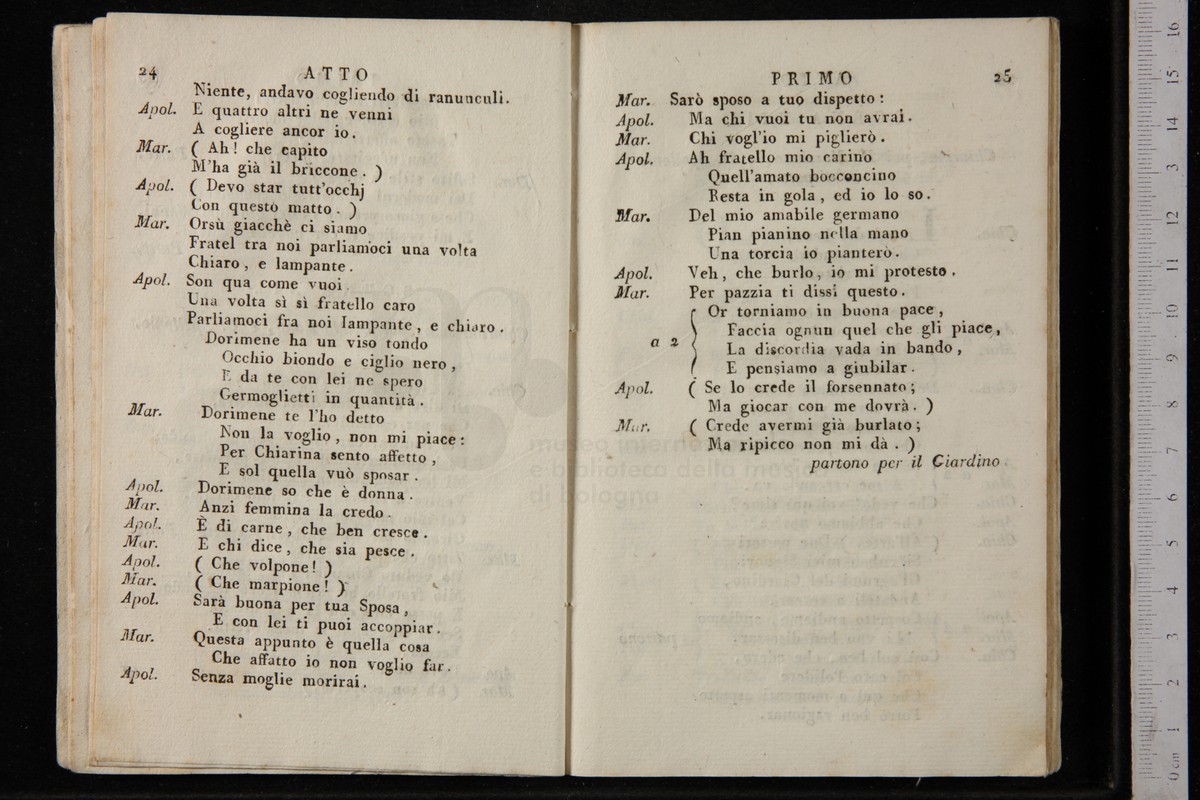 24 ATTO
Niente, andavo cogliendo di ranunculi.
Apol. E quattro altri ne venni
A cogliere ancor io.
Mar. ( Ah! che capito
M'ha già il briccone. )
Apol. ( Devo star tutt'occhj
Con questo matto. )
Mar. Orsù giacchè ci siamo
Fratel tra noi parliamoci una volta
Chiaro, e lampante.
Apol. Son qua come vuoi.
Una volta sì sì fratello caro
Parliamoci fra noi lampante, e chiaro.
Dorimene ha un viso tondo
Occhio biondo e ciglio nero,
E da te con lei ne spero
Germoglietti in quantità.
Mar. Dorimene te l'ho detto
Non la voglio, non mi piace:
Per Chiarina sento affetto,
E sol quella vuò sposar.
Apol. Dorimene so che è donna.
Mar. Anzi femmina la credo.
Apol. È di carne, che ben cresce.
Mar. E chi dice, che sia pesce.
Apol. ( Che volpone! )
Mar. ( Che marpione! )
Apol. Sarà buona per tua Sposa,
E con lei ti puoi accoppiar.
Mar. Questa appunto è quella cosa
Che affatto io non voglio far.
Apol. Senza moglie morirai.
PRIMO 25
Mar. Sarò sposo a tuo dispetto:
Apol. Ma chi vuoi tu non avrai.
Mar. Chi vogl'io mi piglierò.
Apol. Ah fratello mio carino
Quell'amato bocconcino
Resta in gola, ed io lo so.
Mar. Del mio amabile germano
Pian pianino nella mano
Una torcia io pianterò.
Apol. Veh, che burlo, io mi protesto.
Mar. Per pazzia ti dissi questo.
Or torniamo in buona pace,
Faccia ognun quel che gli piace,
a 2 La discordia vada in bando,
E pensiamo a giubilar.
Apol. ( Se lo crede il forsennato;
Ma giocar con me dovrà. )
Mar. ( Crede avermi già burlato;
Ma ripicco non mi dà. )
partono per il Giardino.
museo internazionale
e biblioteca della musica
di bologna
0 cm 1 2 3 4 5 6 7 8 9 10 11 12 13 14 15 16